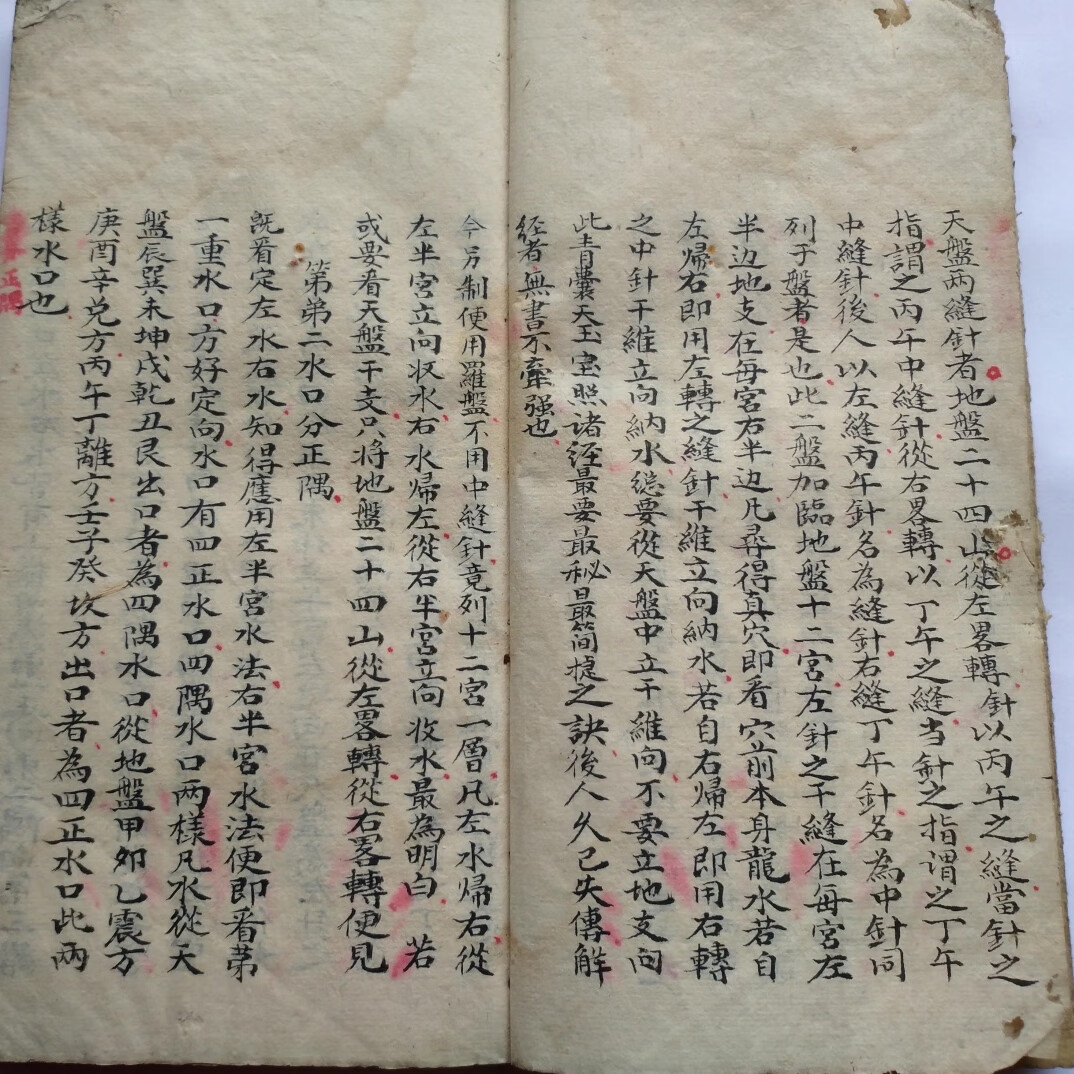 天盤兩縫針者地盤二十四山從左畧轉針以丙午之縫當針之
指謂之丙午中縫針從右畧轉以丁午之縫当針之指謂之丁午
中縫針後人以左縫丙午針名為縫針右縫丁午針名為中針同
列于盤者是也此二盤加臨地盤十二宮左針之干縫在每宮左
半边地支在每宮右半边凡尋得真穴即看穴前本身龍水若自
左帰右即用左轉之縫針干維立向納水若自右帰左即用右轉
之中針干維立向納水總要從天盤中立干維向不要立地支向
此青囊天玉宝照诸経最要最秘最简捷之訣後人久已失傳解
経者無書不牽强也
今另制便用羅盤不用中縫針竟列十二宮一層凡左水帰右從
左半宮立向收水右水帰左從右半宮立向收水最為明白 若
或要看天盤干支只将地盤二十四山從左畧轉從右畧轉便見
第弟二水口分正隅
既看定左水右水知得應用左半宮水法右半宮水法便即看苐
一重水口方好定向水口有四正水口四隅水口两樣凡水從天
盤辰巽未坤戌乾丑艮出口者為四隅水口從地盤甲夘乙震方
庚酉辛兑方丙午丁離方壬子癸坎方出口者為四正水口此兩
樣水口也